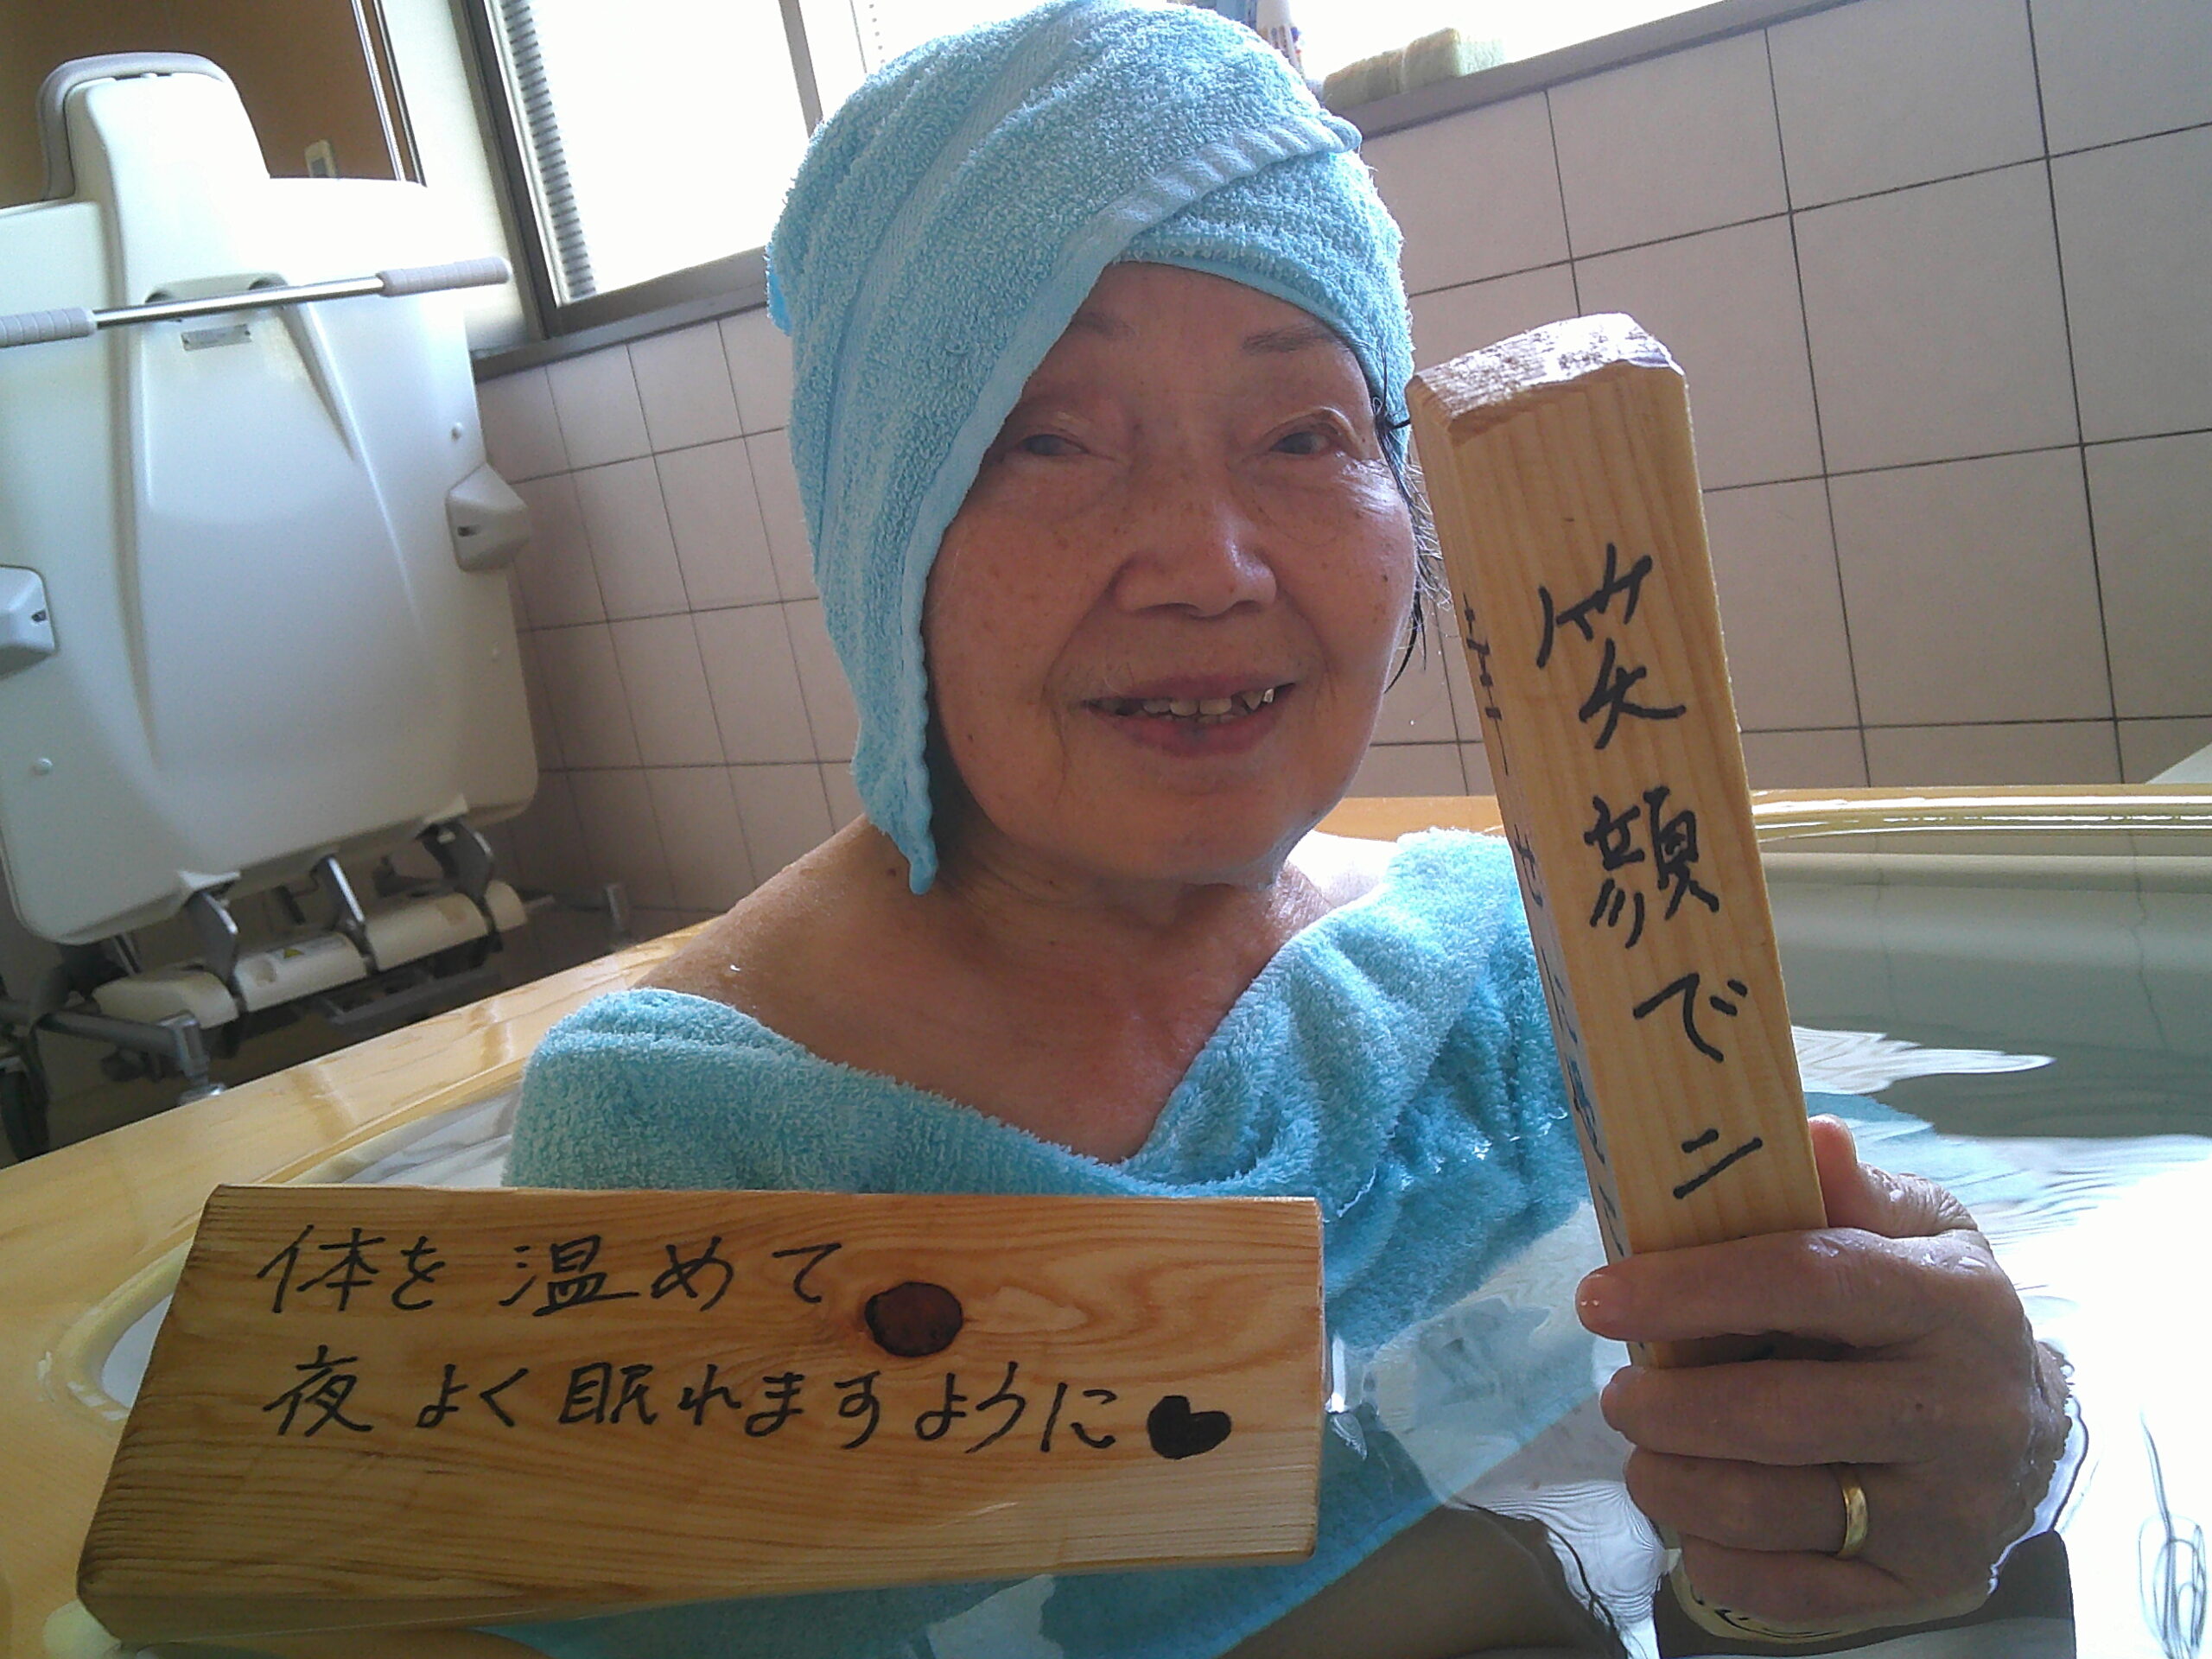 笑顔でニ
体を温めて
夜よく眠れますように